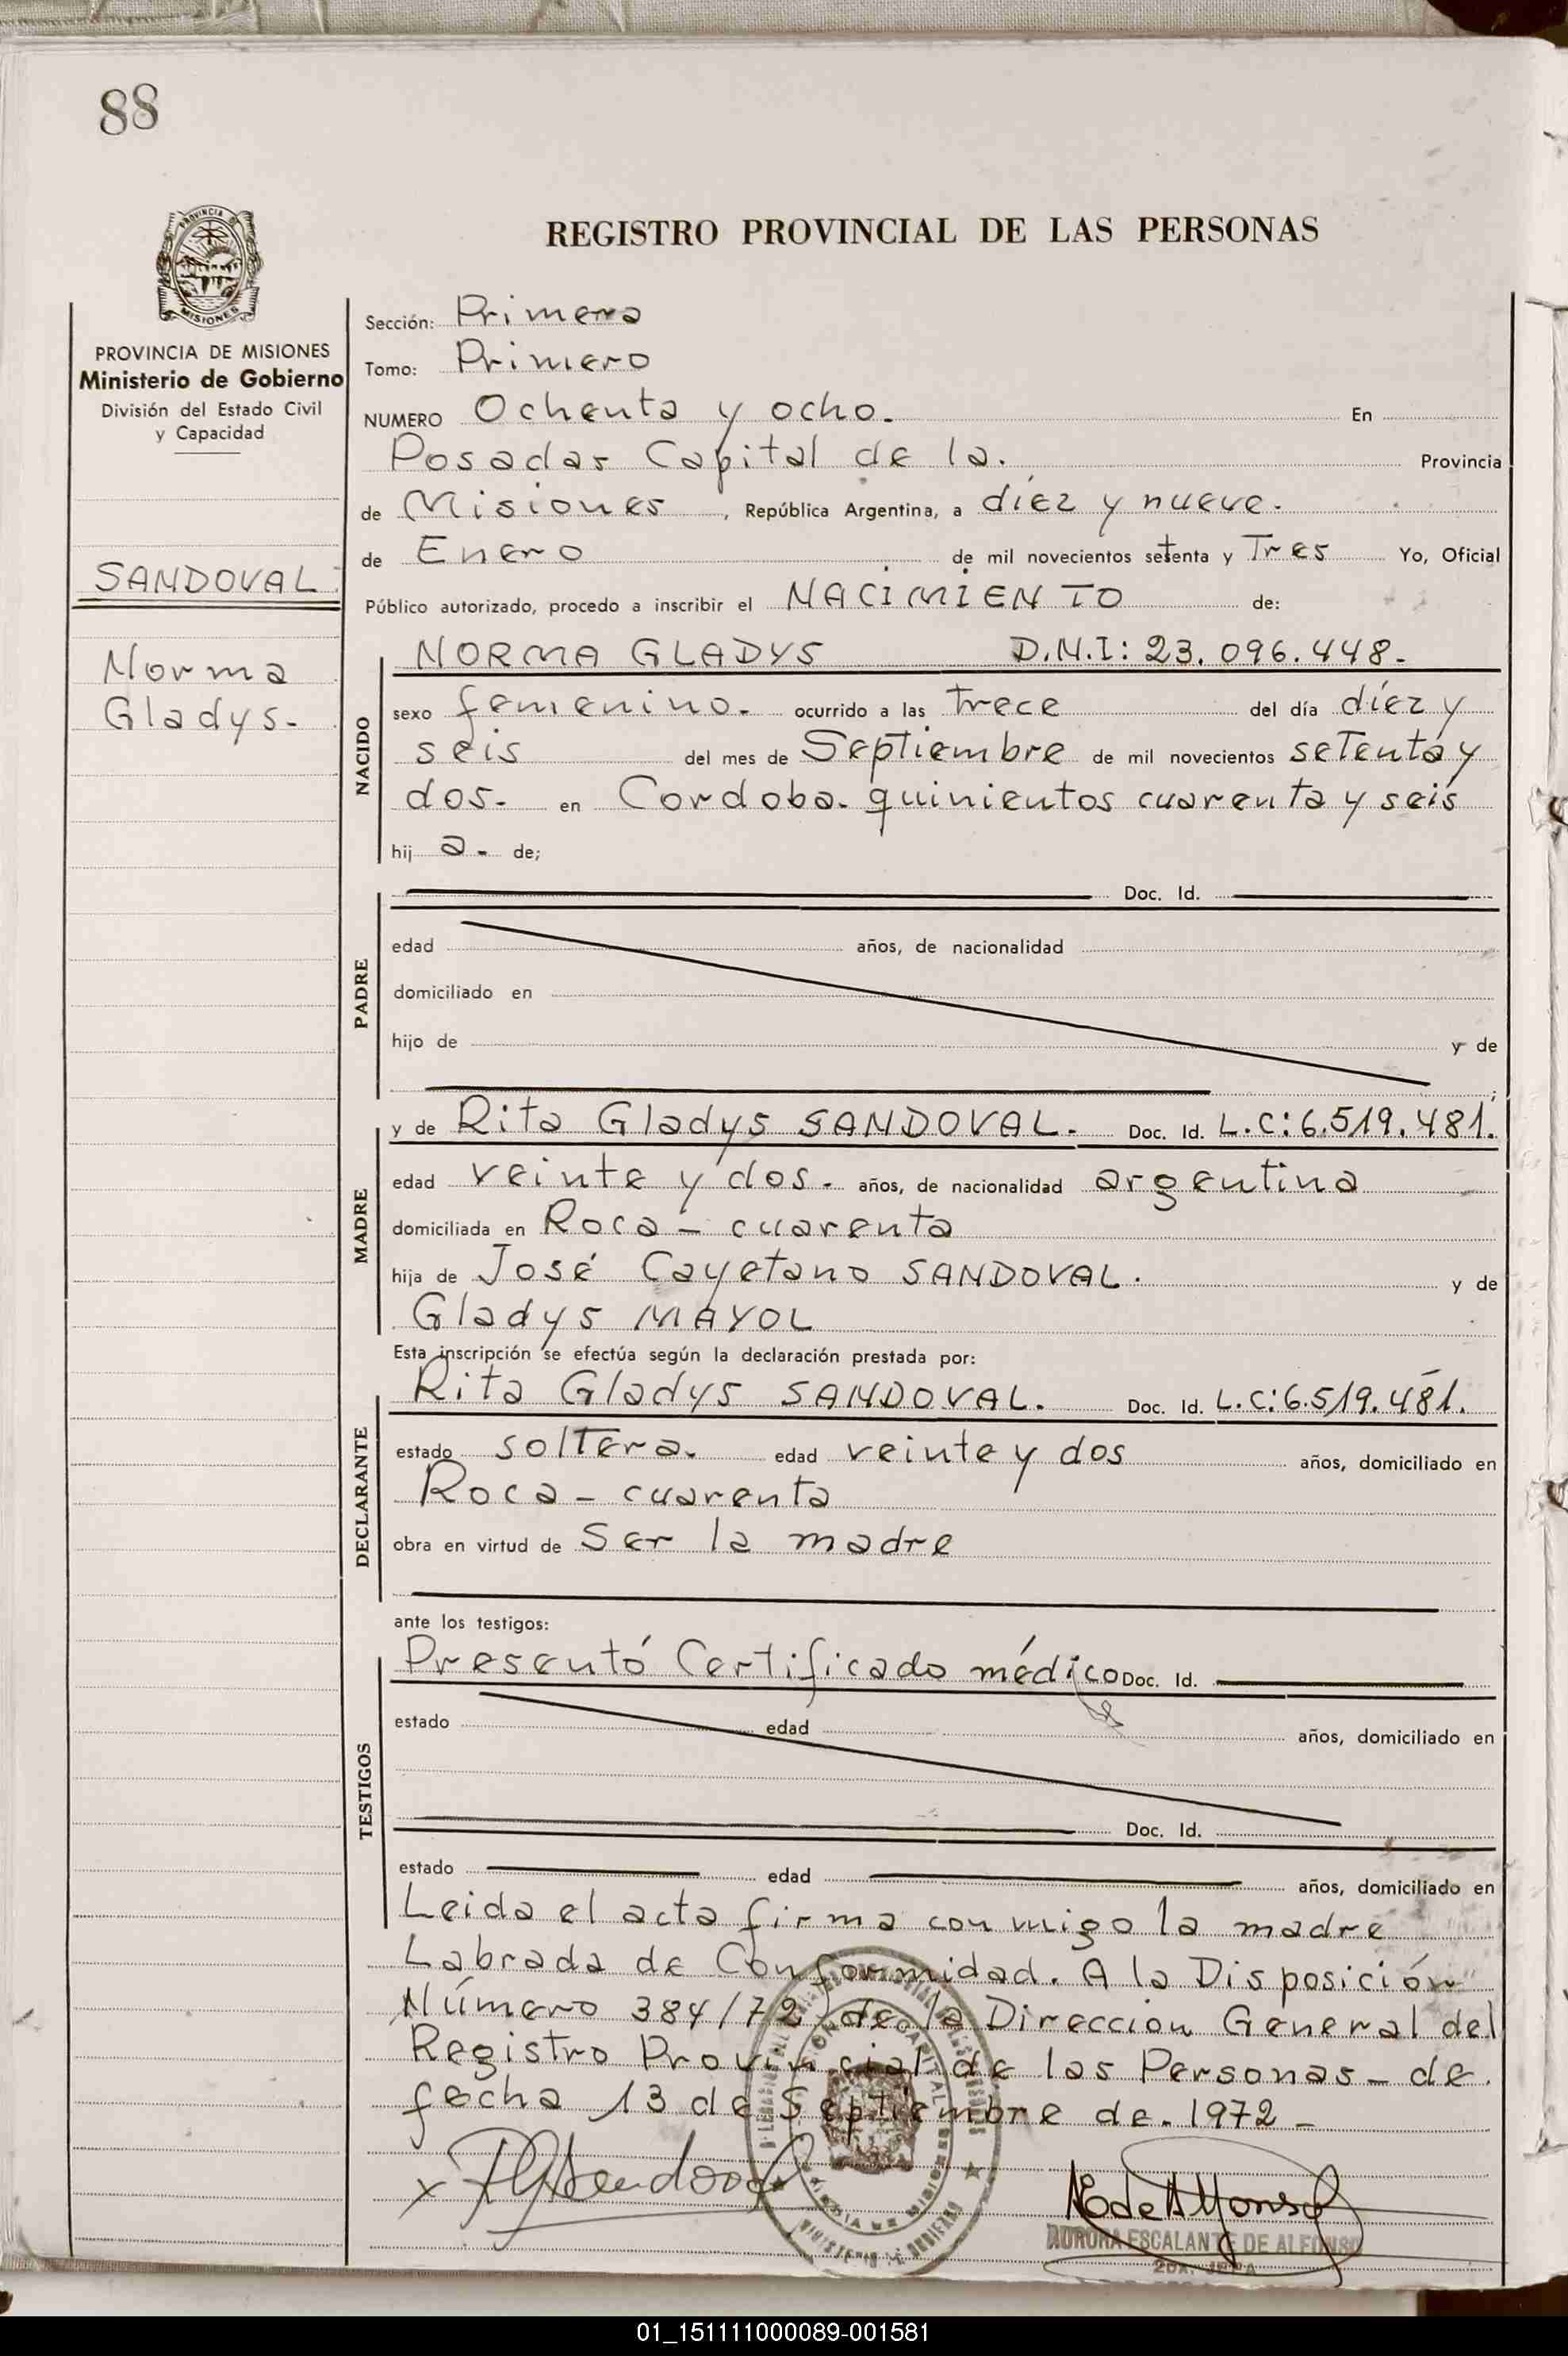 88
PROVINCIA DE
MISIONES
REGISTRO PROVINCIAL DE LAS PERSONAS
PROVINCIA DE MISIONES
Ministerio de Gobierno
División del Estado Civil
y Capacidad
SANDOVAL
Norma
Gladys-
Sección: Primera
Tomo: Primero
NUMERO Ochenta y ocho. En
Posadas Capital de la. Provincia
de Misiones, República Argentina, a diez y nueve.
de Enero de mil novecientos setenta y Tres Yo, Oficial
Público autorizado, procedo a inscribir el NACIMIENTO de:
NACIDO
NORMA GLADYS D.N.I: 23.096.448.-
sexo femenino.- ocurrido a las trece del día díez y
seis del mes de Septiembre de mil novecientos setenta y
dos.- en Cordoba. quinientos cuarenta y seis
hij a.- de;
PADRE
Doc. Id.
edad años, de nacionalidad
domiciliado en
hijo de y de
MADRE
y de Rita Gladys SANDOVAL.- Doc. Id. L.C: 6.519.481.
edad veinte y dos.- años, de nacionalidad argentina
domiciliada en Roca - cuarenta
hija de José Cayetano SANDOVAL. y de
Gladys MAYOL
Esta inscripción se efectúa según la declaración prestada por:
DECLARANTE
Rita Gladys SANDOVAL. Doc. Id. L.C: 6.519.481.
estado soltera. edad veinte y dos años, domiciliado en
Roca - cuarenta
obra en virtud de Ser la madre
ante los testigos:
TESTIGOS
Presentó Certificado médico Doc. Id.
estado edad años, domiciliado en
Doc. Id.
estado edad años, domiciliado en
Leida el acta firma con migo la madre
Labrada de Conformidad. A la Disposición
Número 384/72) de la Direccion General del
Registro Provincial de las Personas - de
fecha 13 de Septiembre de. 1972 -
x RGSandoval
AEdeAlfonso
AURORA ESCALANTE DE ALFONSO
2DA. JEFA
01_151111000089-001581